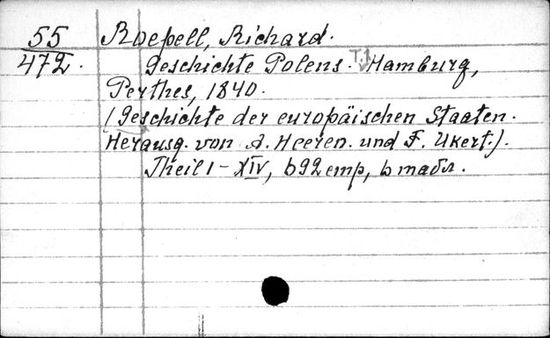 55
472.
Roepell, Richard.
Geschichte Polens. T.1. Hamburg,
Perthes, 1840.
(Geschichte der europäischen Staaten.
Herausg. von A. Heeren. und F. Ukert.).
Theil 1 - XIV, 692 стр, 6 табл.